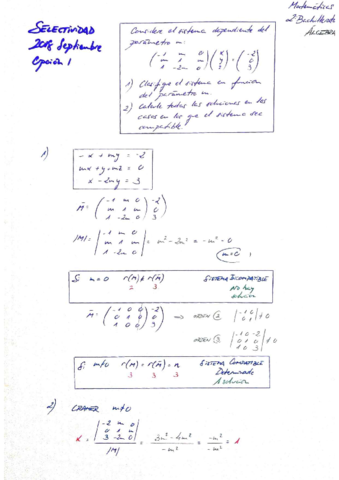 SELECTIVIDAD
2018 Septiembre
Opción 1
Matemáticas
2º Bachillerato
ALGEBRA
Considere el sistema dependiente del
parámetro m:
( -1 m 0 ; m 1 m ; 1 -2m 0 ) ( x ; y ; z ) = ( -2 ; 0 ; 3 )
1) Clasifique el sistema en función
del parámetro m.
2) Calcule todas las soluciones en los
casos en los que el sistema sea
compatible.
1)
-x + my = -2
mx + y + mz = 0
x - 2my = 3
M̄ = ( -1 m 0 -2 ; m 1 m 0 ; 1 -2m 0 3 )
|M| = | -1 m 0 ; m 1 m ; 1 -2m 0 | = m² - 2m² = -m² = 0
m=0
Si m=0 r(M) ≠ r(M̄) SISTEMA INCOMPATIBLE
2 3 No hay
solución
M̄ = ( -1 0 0 -2 ; 0 1 0 0 ; 1 0 0 3 ) ⇒ ORDEN 2 | -1 0 ; 0 1 | ≠ 0
ORDEN 3 | -1 0 -2 ; 0 1 0 ; 1 0 3 | ≠ 0
Si m≠0 r(M) = r(M̄) = n SISTEMA COMPATIBLE
3 3 3 Determinado
1 solución
2) CRAMER m≠0
x = | -2 m 0 ; 0 1 m ; 3 -2m 0 | / |M| = 3m² - 4m² / -m² = -m² / -m² = 1